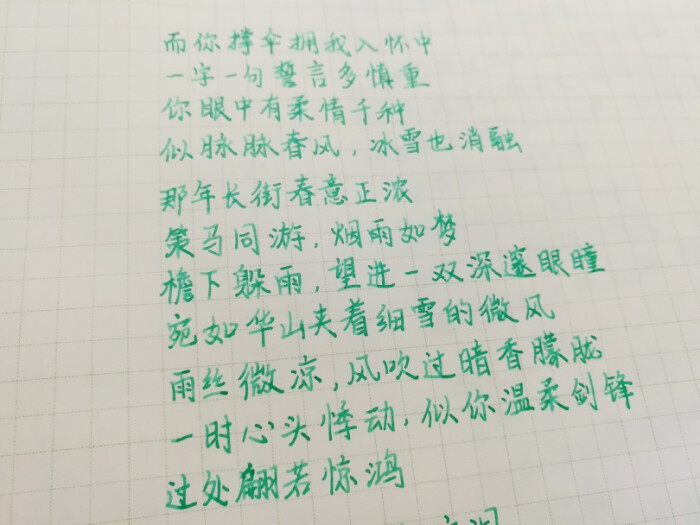 而你撑伞拥我入怀中
一字一句誓言多慎重
你眼中有柔情千种
似脉脉春风，冰雪也消融
那年长街春意正浓
策马同游，烟雨如梦
檐下躲雨，望进一双深邃眼瞳
宛如华山夹着细雪的微风
雨丝微凉，风吹过暗香朦胧
一时心头悸动，似你温柔剑锋
过处翩若惊鸿